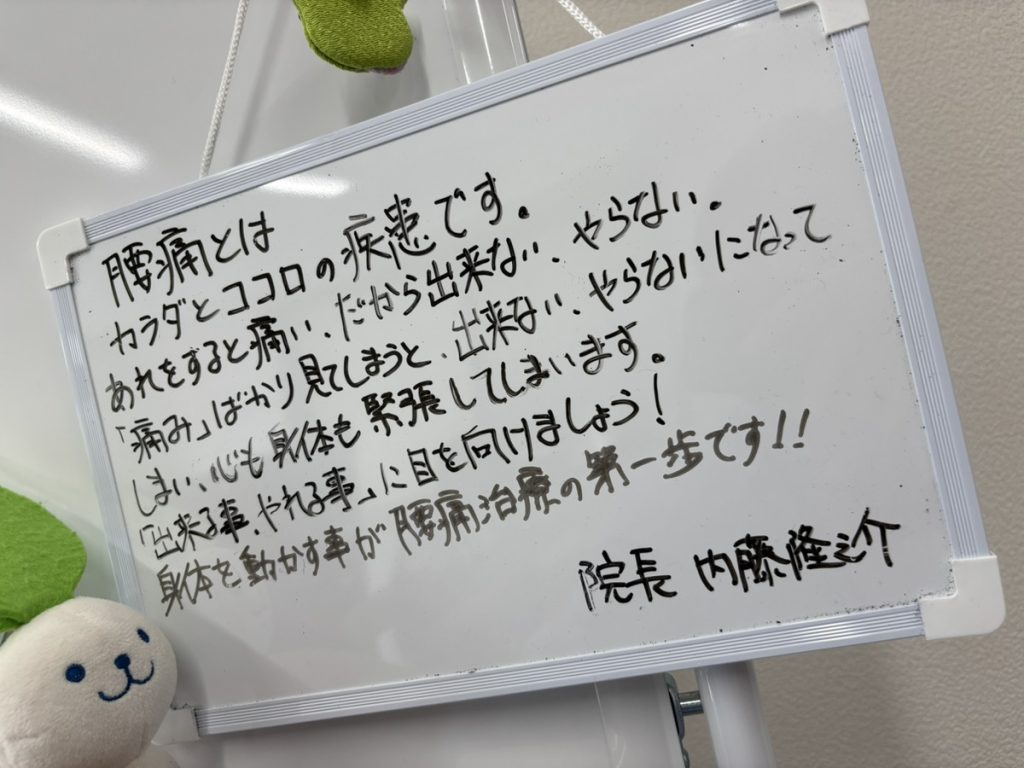 腰痛とは
カラダとココロの疾患です。
あれをすると痛い、だから出来ない、やらない。
「痛み」ばかり見てしまうと、出来ない、やらないになって
しまい、心も身体も緊張してしまいます。
「出来る事、やれる事」に目を向けましょう！
身体を動かす事が腰痛治療の第一歩です!!
院長 内藤隆之介